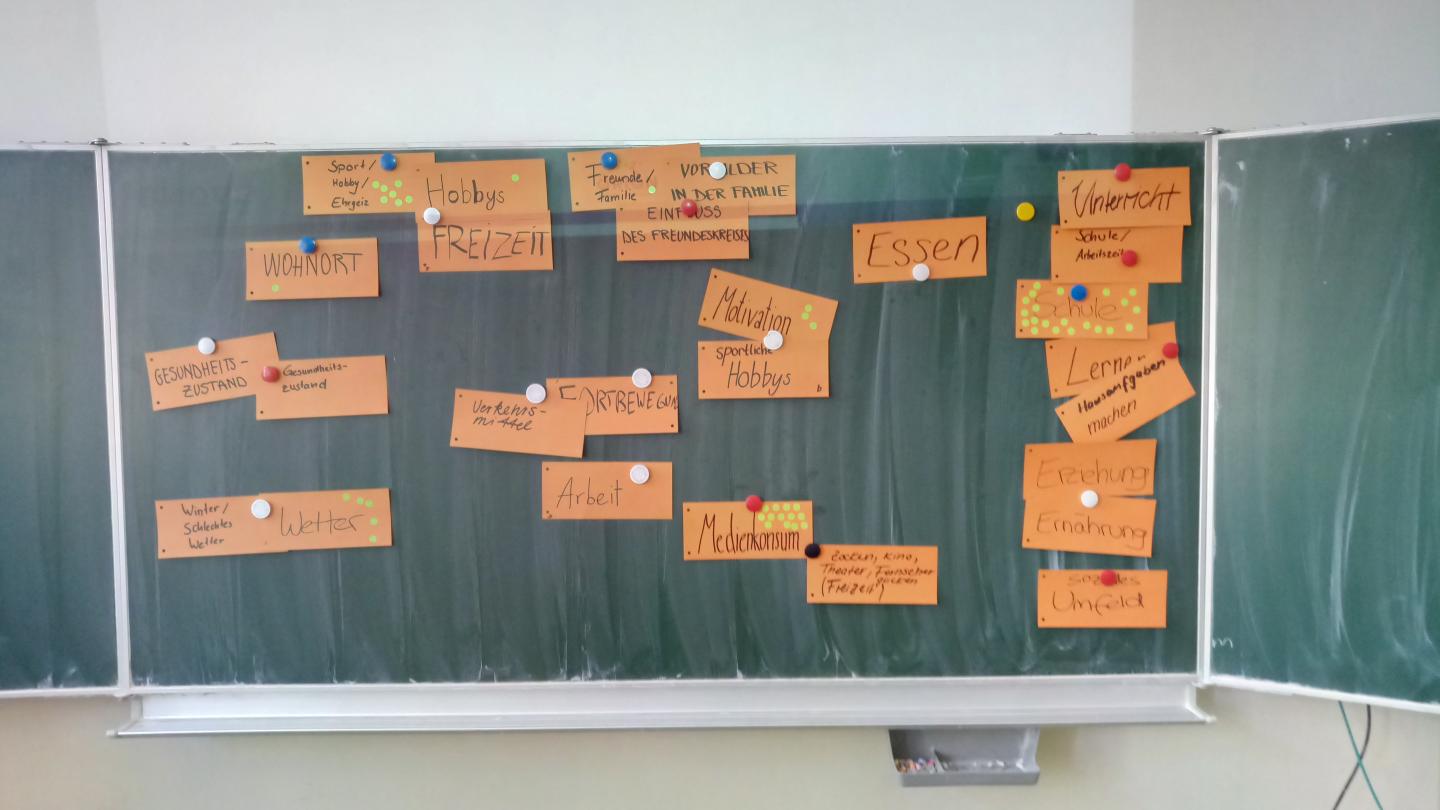 Sport/
Hobby/
Ehrgeiz
Hobbys
FREIZEIT
Freunde/
Familie
VORBILDER
IN DER FAMILIE
EINFLUSS
DES FREUNDESKREISES
WOHNORT
Essen
Unterricht
Schule/
Arbeitszeit
Schule
Lernen
Hausaufgaben
machen
Motivation
sportliche
Hobbys
GESUNDHEITS-
ZUSTAND
Gesundheits-
zustand
Verkehrs-
mittel
FORTBEWEGUNG
Arbeit
Erziehung
Ernährung
Winter/
Schlechtes
Wetter
Wetter
Medienkonsum
Zocken, Kino,
Theater, Fernseher
gucken
(Freizeit)
soziales
Umfeld